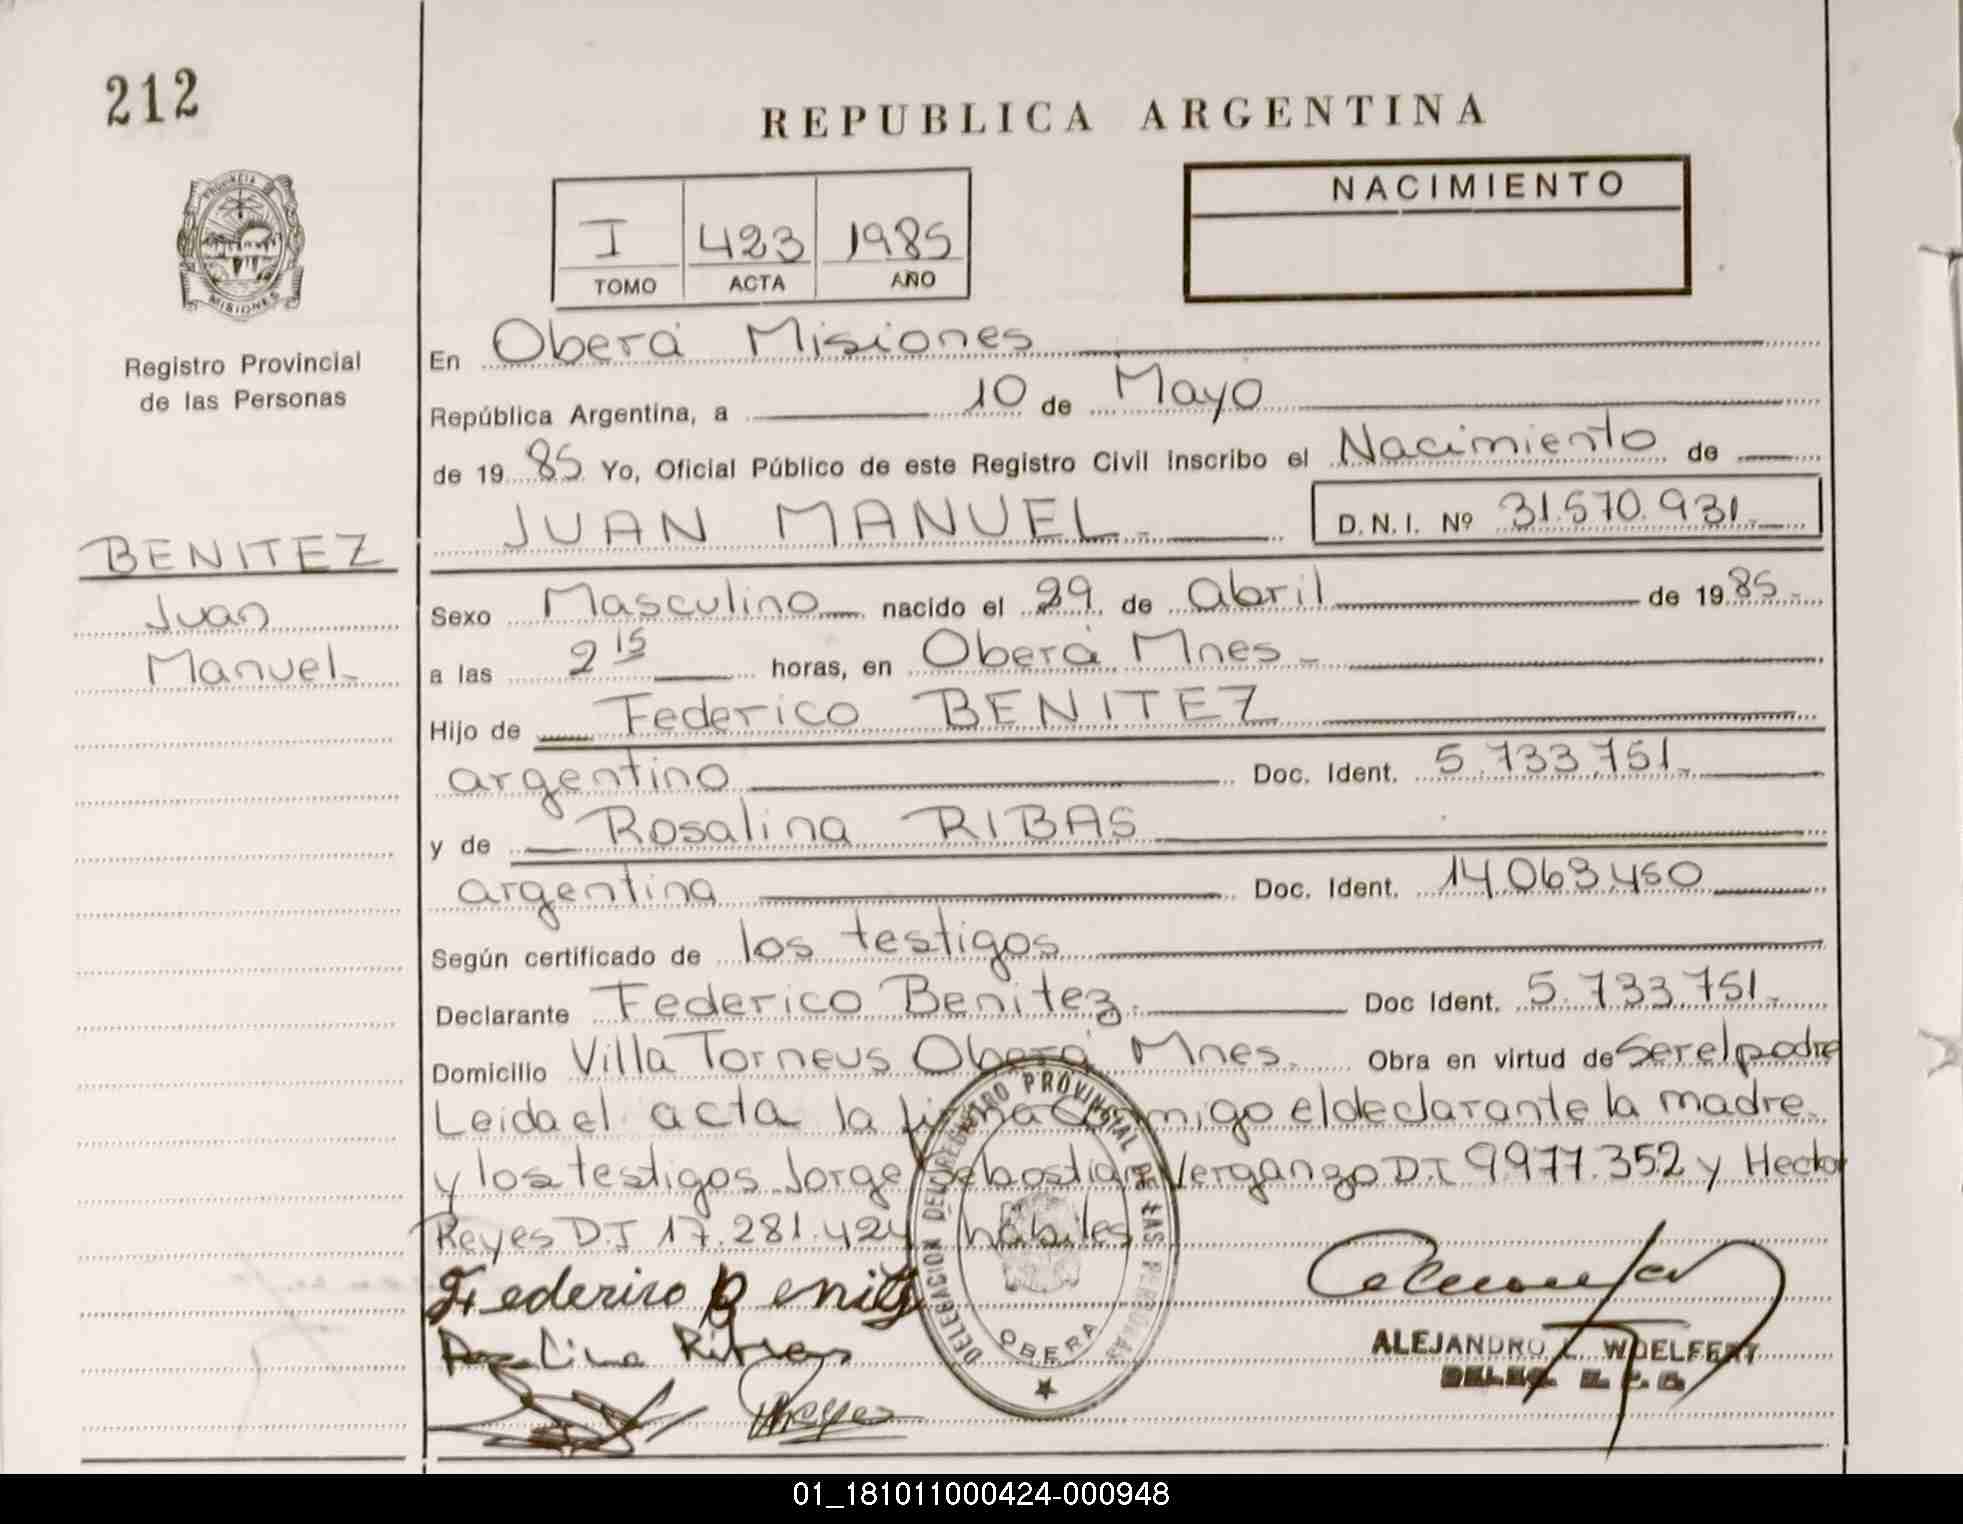 212
REPUBLICA ARGENTINA
PROVINCIA DE
MISIONES
Registro Provincial
de las Personas
I 423 1985
TOMO ACTA AÑO
NACIMIENTO
En Oberá Misiones
República Argentina, a 10 de Mayo
de 1985 Yo, Oficial Público de este Registro Civil inscribo el Nacimiento de
JUAN MANUEL.
D.N.I. Nº 31.570.931.
BENITEZ
Juan
Manuel.
Sexo Masculino nacido el 29 de abril de 1985.
a las 2 15 horas, en Oberá Mnes.
Hijo de Federico BENITEZ
argentino Doc. Ident. 5.733.751.
y de Rosalina RIBAS
argentina Doc. Ident. 14.063.450
Según certificado de los testigos
Declarante Federico Benitez. Doc Ident. 5.733.751.
Domicilio Villa Torneus Oberá Mnes. Obra en virtud de Ser el padre
Leida el acta la firma Conmigo el declarante la madre
y los testigos Jorge Sebastian Vergango D.I 9.977.352 y Hector
Reyes D.I 17.281.424 habiles
Federico Benitez
DELEGACION DEL REGISTRO PROVINCIAL DE LAS PERSONAS
OBERA
ALEJANDRO L. WOELFERT
01_181011000424-000948